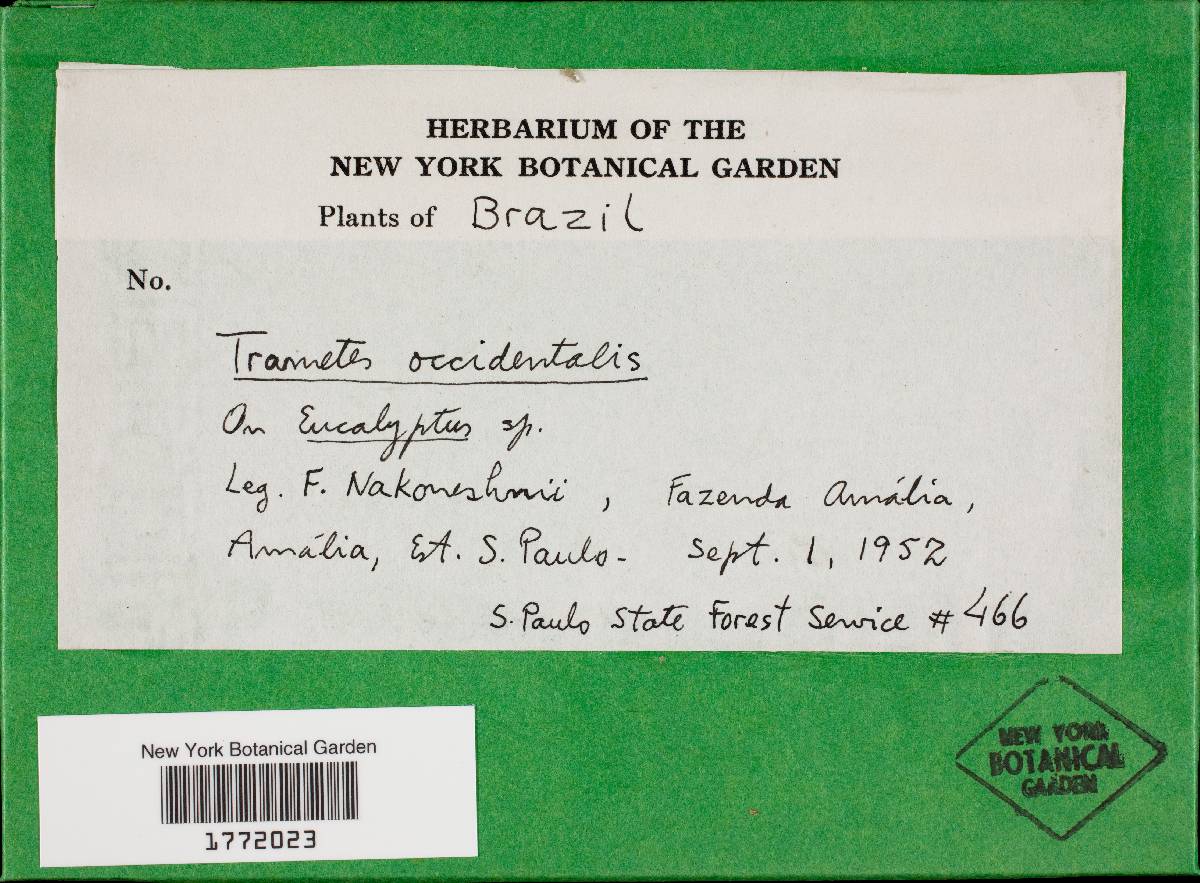 HERBARIUM OF THE
NEW YORK BOTANICAL GARDEN
Plants of Brazil
No.
Trametes occidentalis
On Eucalyptus sp.
Leg. F. , Fazenda Amália,
Amália, Est. S. Paulo - Sept. 1, 1952
S. Paulo State Forest Service # 466
New York Botanical Garden
1772023
NEW YORK
BOTANICAL
GARDEN